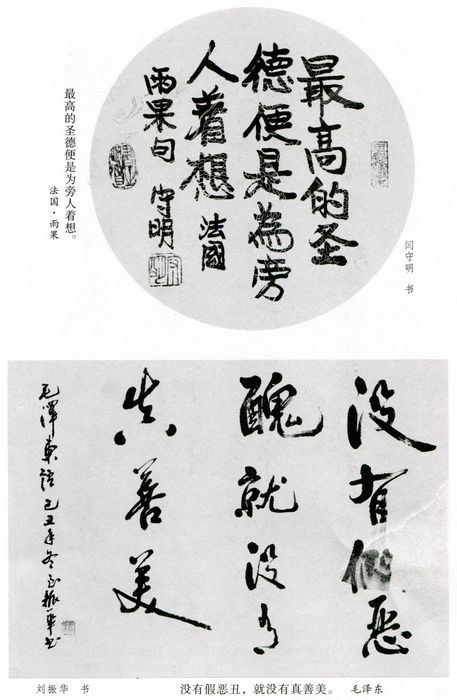 最高的圣
德便是為旁
人着想 法國
雨果句 守明
最高的圣德便是为旁人着想。
法国·雨果
闫守明 书
没有假恶
醜就没有
真善美
毛澤東語己丑年冬至振華书
刘振华 书
没有假恶丑，就没有真善美。 毛泽东